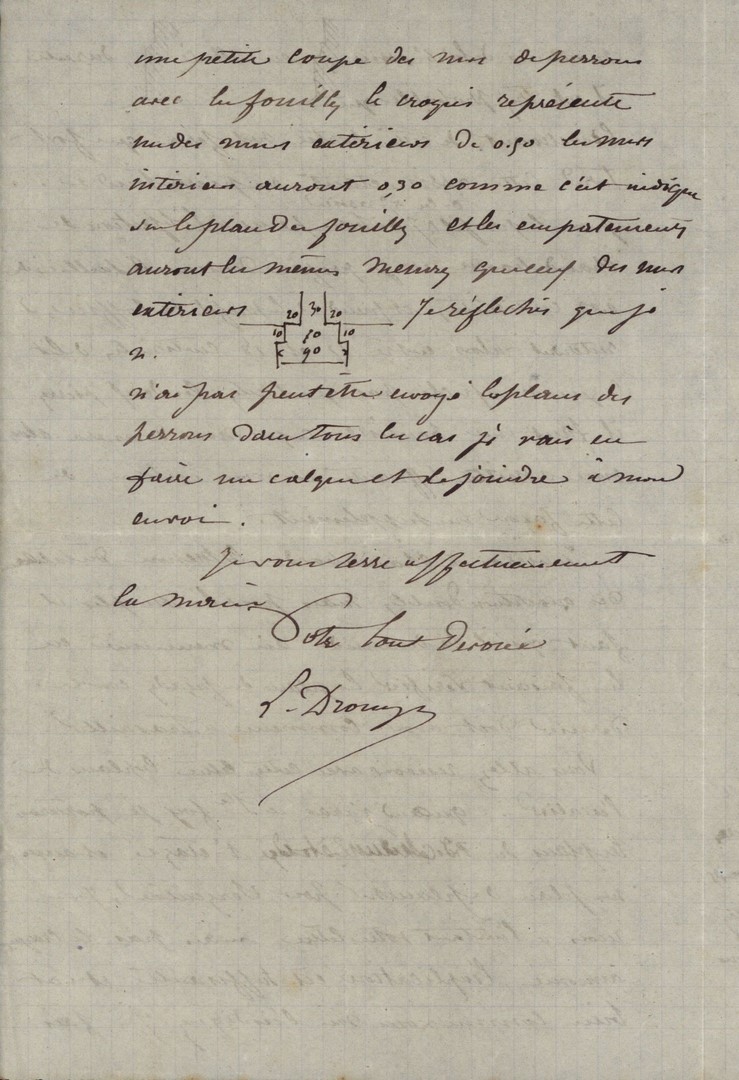 une petite coupe des murs de perrons
avec les fouilles le croquis représente
un des murs extérieurs de 0.50 les murs
intérieurs auront 0,30 comme c'est indiqué
sur le plan des fouilles et les empatements
auront les mêmes mesures que ceux des murs
extérieurs
20 30 20
10 50 10
90
Je réfléchis que je
n.
n'ai pas peut être envoyé les plans des
perrons dans tous les cas je vais en
faire un calque et le joindre à mon
envoi.
Je vous serre affectueusement
la main
Votre tout dévoué
L. Drouyn